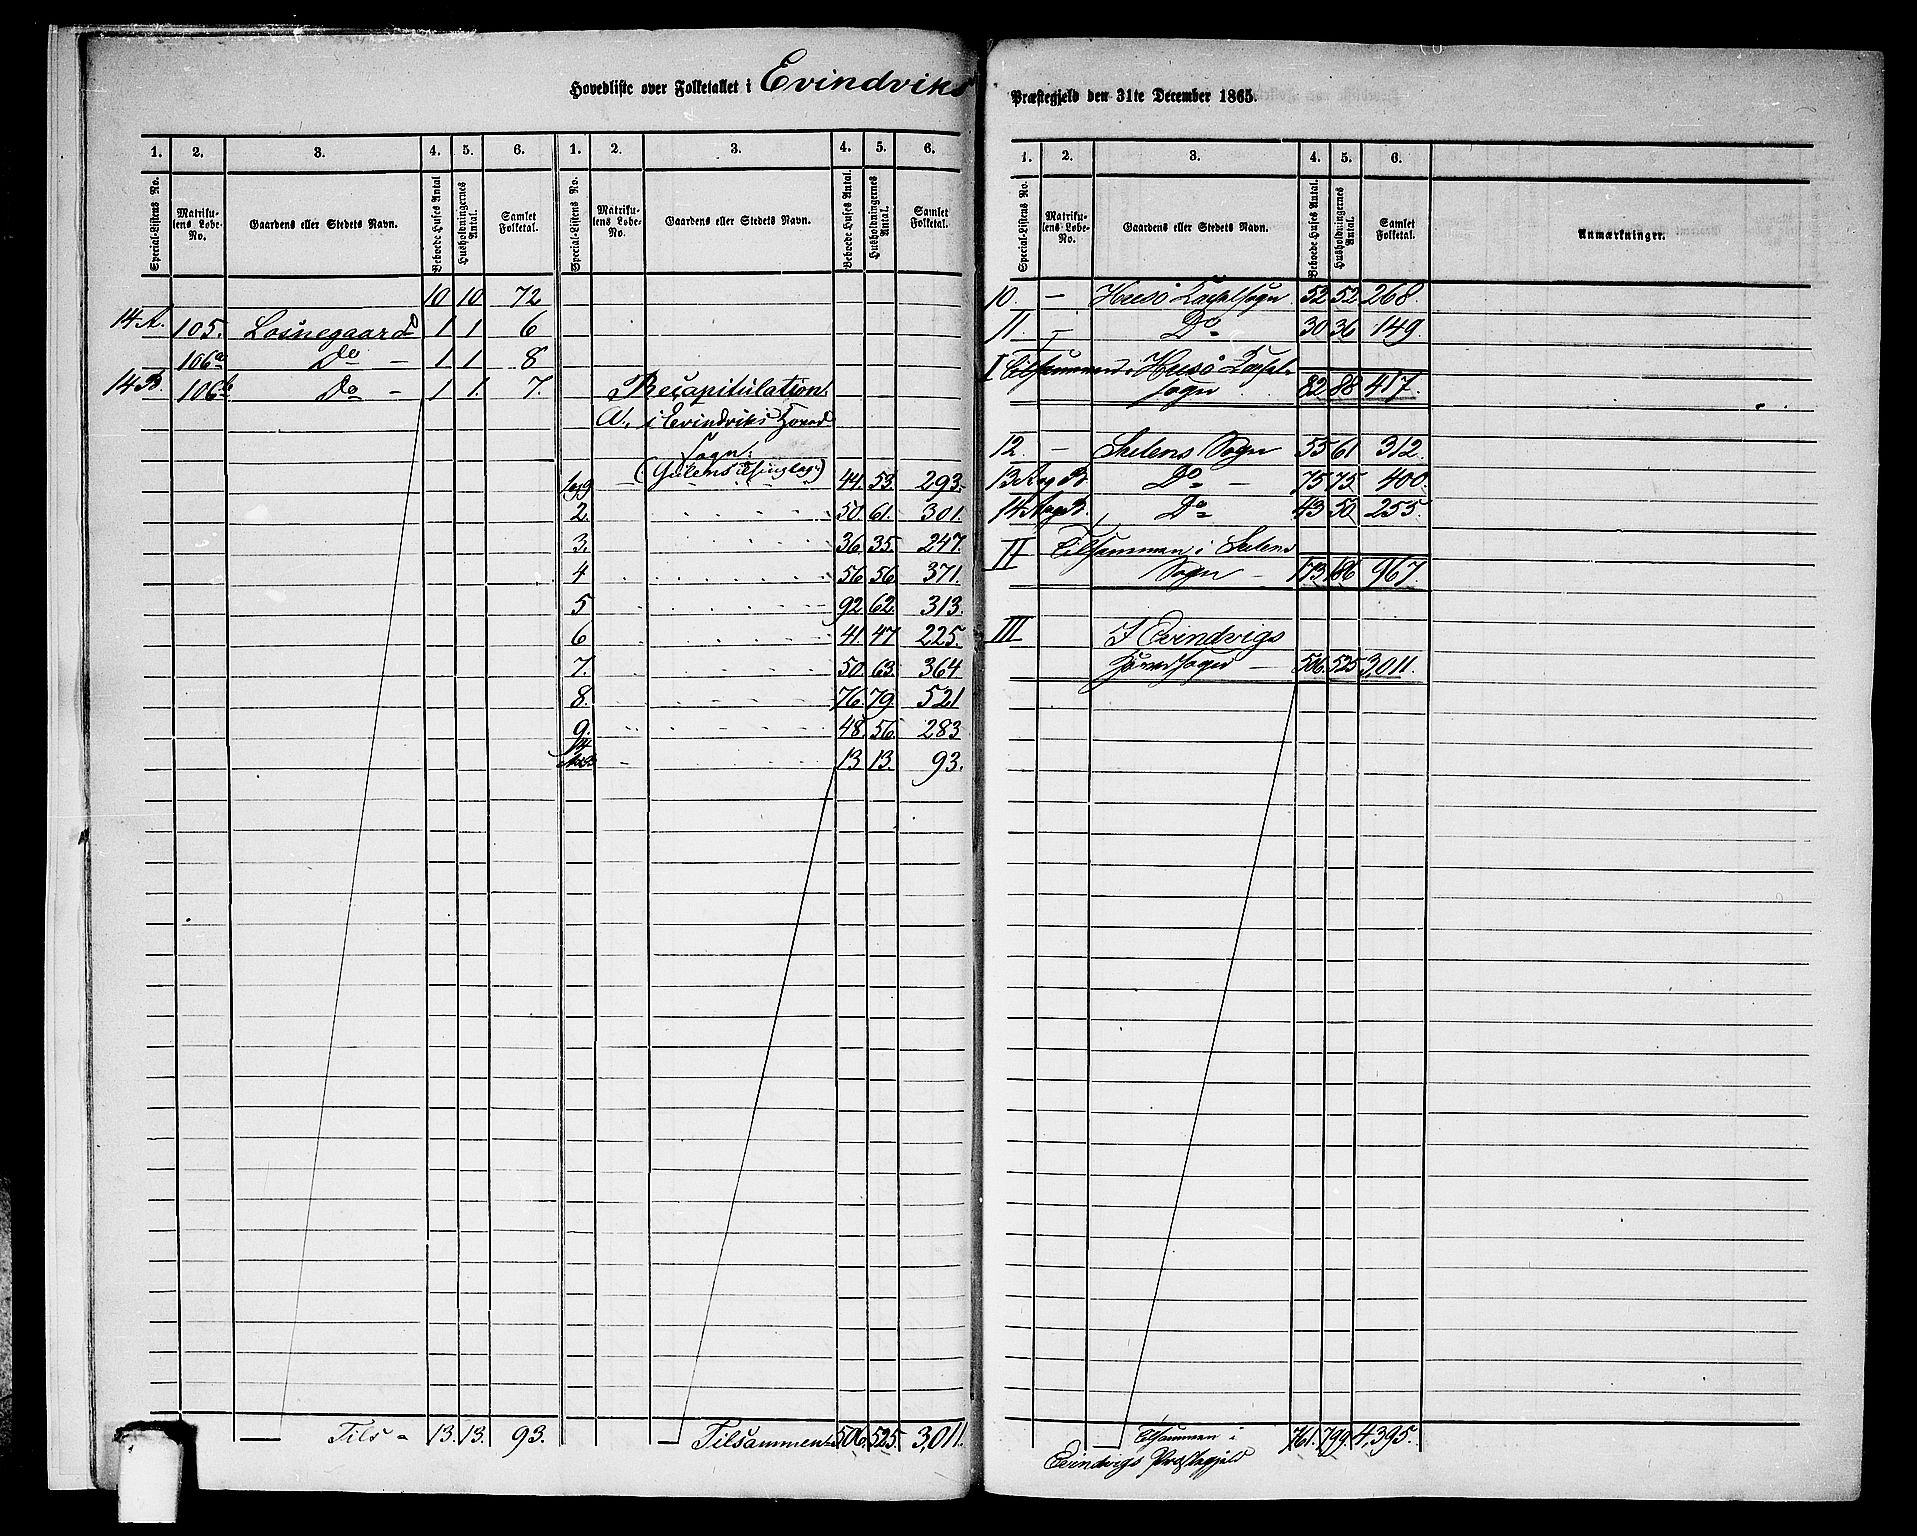 Hovedliste over Folketallet i Evindviks Præstegjeld den 31te December 1865.
1. 2. 3. 4. 5. 6.
Special-Listens No. Matrikulens Løbe-No. Gaardens eller Stedets Navn. Beboede Huses Antal Husholdningernes Antal. Samlet Folketal.
10 10 72
14 A. 105. Losnegaard 1 1 6
106a Do - 1 1 8
14 B. 106b Do - 1 1. 7.
Tils - 13. 13. 93.
1. 2. 3. 4. 5. 6.
Special-Listens No. Matrikulens Løbe-No. Gaardens eller Stedets Navn. Beboede Huses Antal. Husholdningernes Antal. Samlet Folketal.
Recapitulation.
i Evindviks Hoved
Sogn.
(Gulens Thinglag.) 44. 53. 293.
2. 50. 61. 301.
3. 36. 35. 247.
4 56 56 371.
5 92 62. 313.
6 41. 47 225.
7. 50. 63. 364
8. 76. 79. 521
9. 48. 56. 283
13 13. 93.
Tilsammen 506. 525. 3,011.
1. 2. 3. 4. 5. 6.
Special-Listens No. Matrikulens Løbe-No. Gaardens eller Stedets Navn. Beboede Huses Antal. Husholdningernes Antal. Samlet Folketal. Anmærkninger.
10. - Husø Capelsogn. 52 52. 268.
11. - Do 30 36 149.
I Tilsammen i Husø Capel-
sogn 82 88 417.
12. - Sulens Sogn 55 61 312.
13 A og B Do - 75 75. 400.
14 A og B. Do 43 50 255.
II Tilsammen i Sulens
Sogn - 173 186 967.
III I Evindvigs
Hovedsogn - 506. 525 3,011.
Tilsammen i
Evindvigs Præstegjeld 761. 799. 4,395.